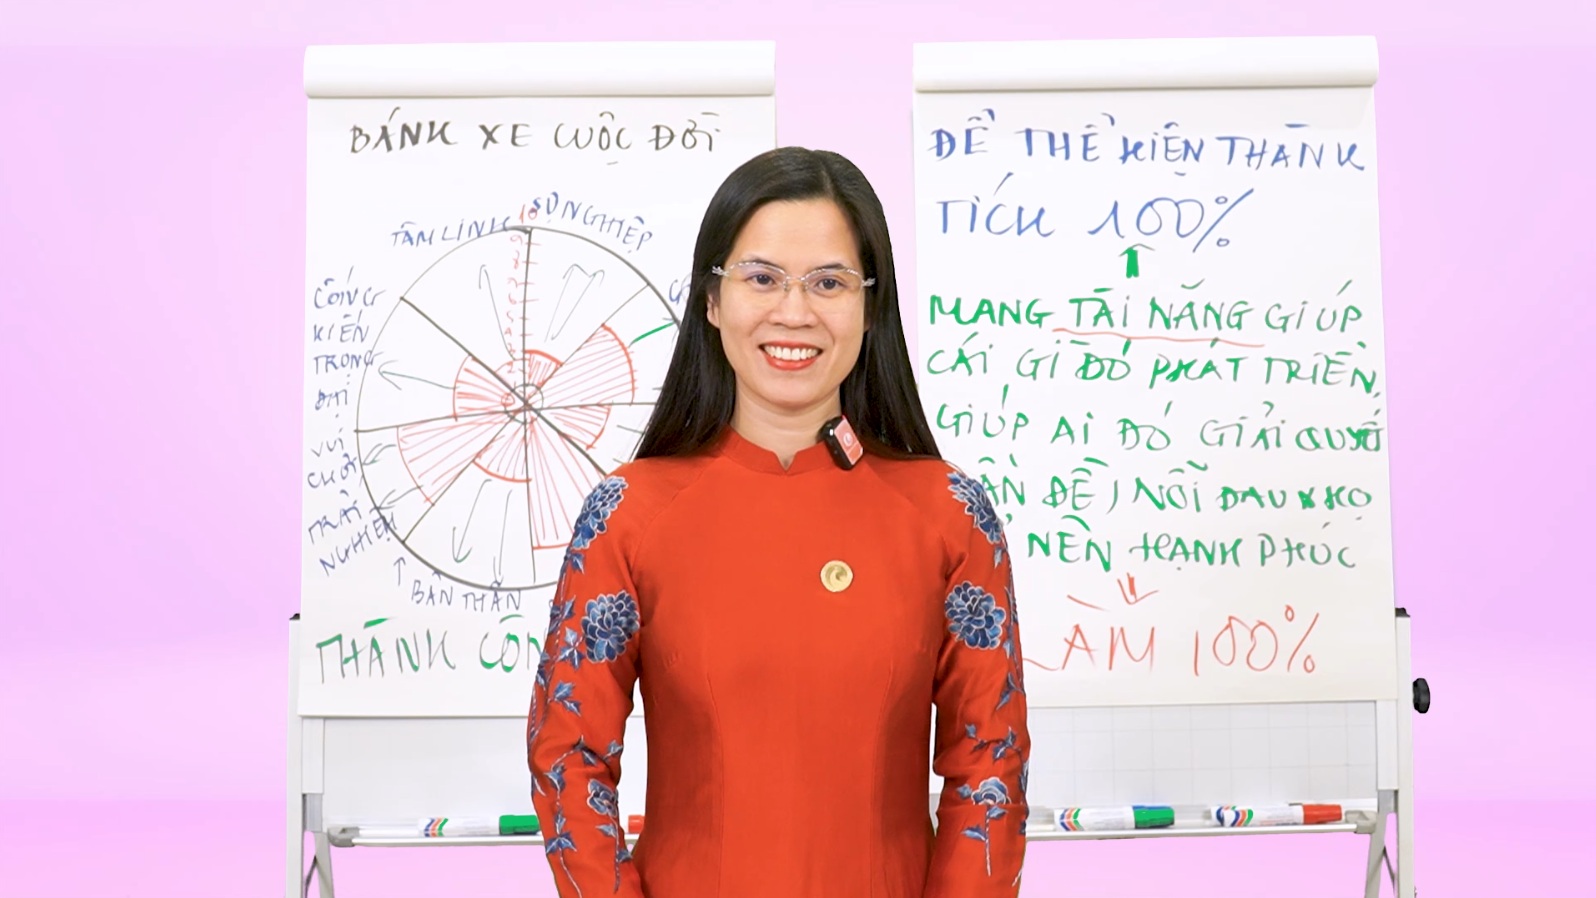 BÁNH XE CUỘC ĐỜI
SỰ NGHIỆP
TÂM LINH
10
9
8
7
6
5
4
3
2
CỐNG
HIẾN
TRONG
ĐẠI
VUI
CHƠI
TRẢI
NGHIỆM
BẢN THÂN
THÀNH CÔN
ĐỂ THỂ HIỆN THÀNH
TÍCH 100%
MANG TÀI NĂNG GIÚP
CÁI GÌ ĐÓ PHÁT TRIỂN,
GIÚP AI ĐÓ GIẢI QUYẾT
ẤN ĐỀ, NỖI ĐAU KHỔ
NÊN HẠNH PHÚC
LÀM 100%